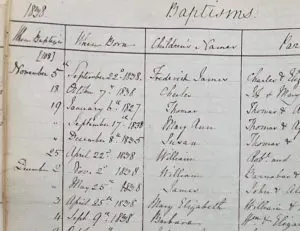 1838. Baptisms.
When Baptized When Born Children's Names Par
[108]
November 5th September 22nd 1838. Frederick James Charles & El
18 October 7th 1838 Charles & Mary
" January 6th 1827 Thomas Thomas &
" September 17th 1838 Mary Ann Thomas &
" December 8th 1835 Susan Thomas &
25 April 22d 1838 William Robt. and
December 2 Nov. 2d 1838 William Barnabas &
" May 25th 1838 James John &
3 April 25th 1838 Mary Elizabeth William &
4 Sept. 9th 1838 Barbara Wm & Eliza